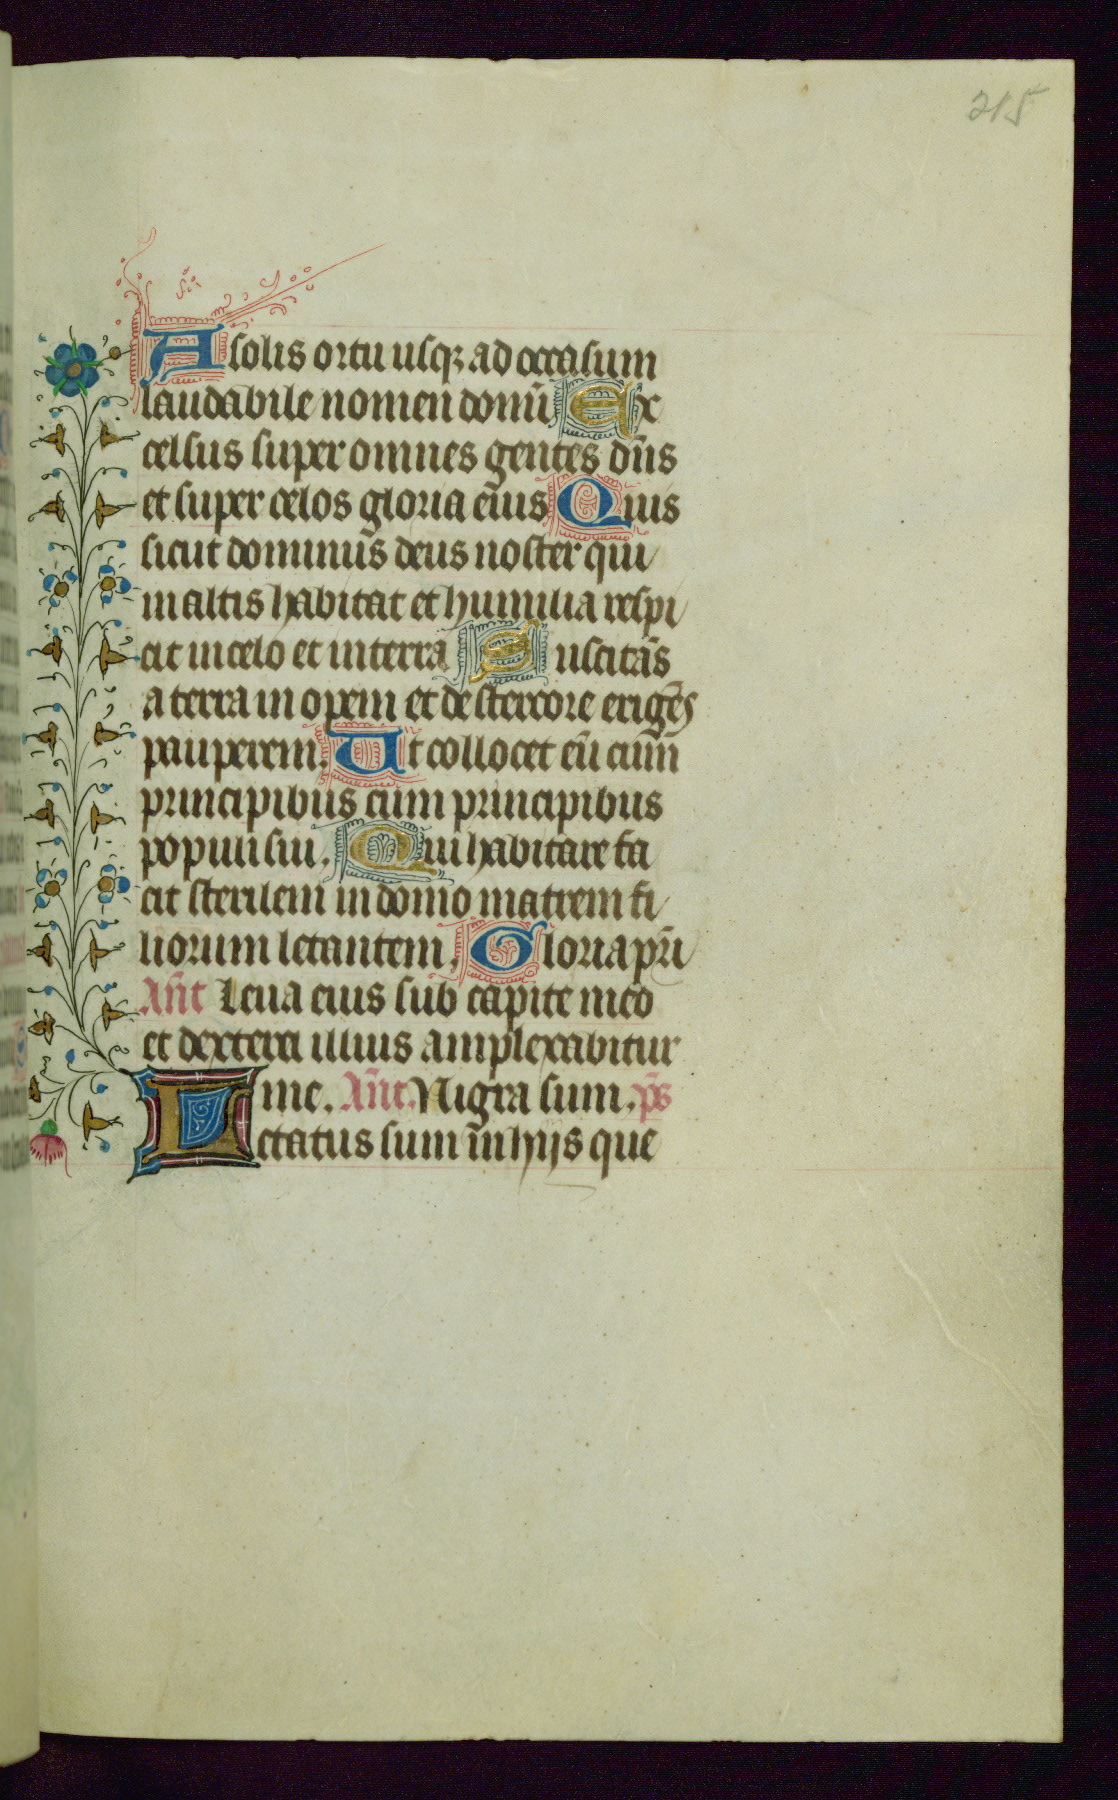 215
A solis ortu usqꝫ ad occasum
laudabile nomen domĩ Ex
celsus super omnes gentes dñs
et super celos gloria eius Quis
sicut dominus deus noster qui
in altis habitat et humilia respi
cit in celo et in terra Suscitãs
a terra in opem et de stercore erigẽs
pauperem. Ut collocet eũ cum
principibus cum principibus
populi sui. Qui habitare fa
cit sterilem in domo matrem fi
liorum letantem. Gloria pr̃i
Añt Leua eius sub capite meo
et dextera illius amplexabitur
me. Añt. Nigra sum. p̃s
Letatus sum in hijs que